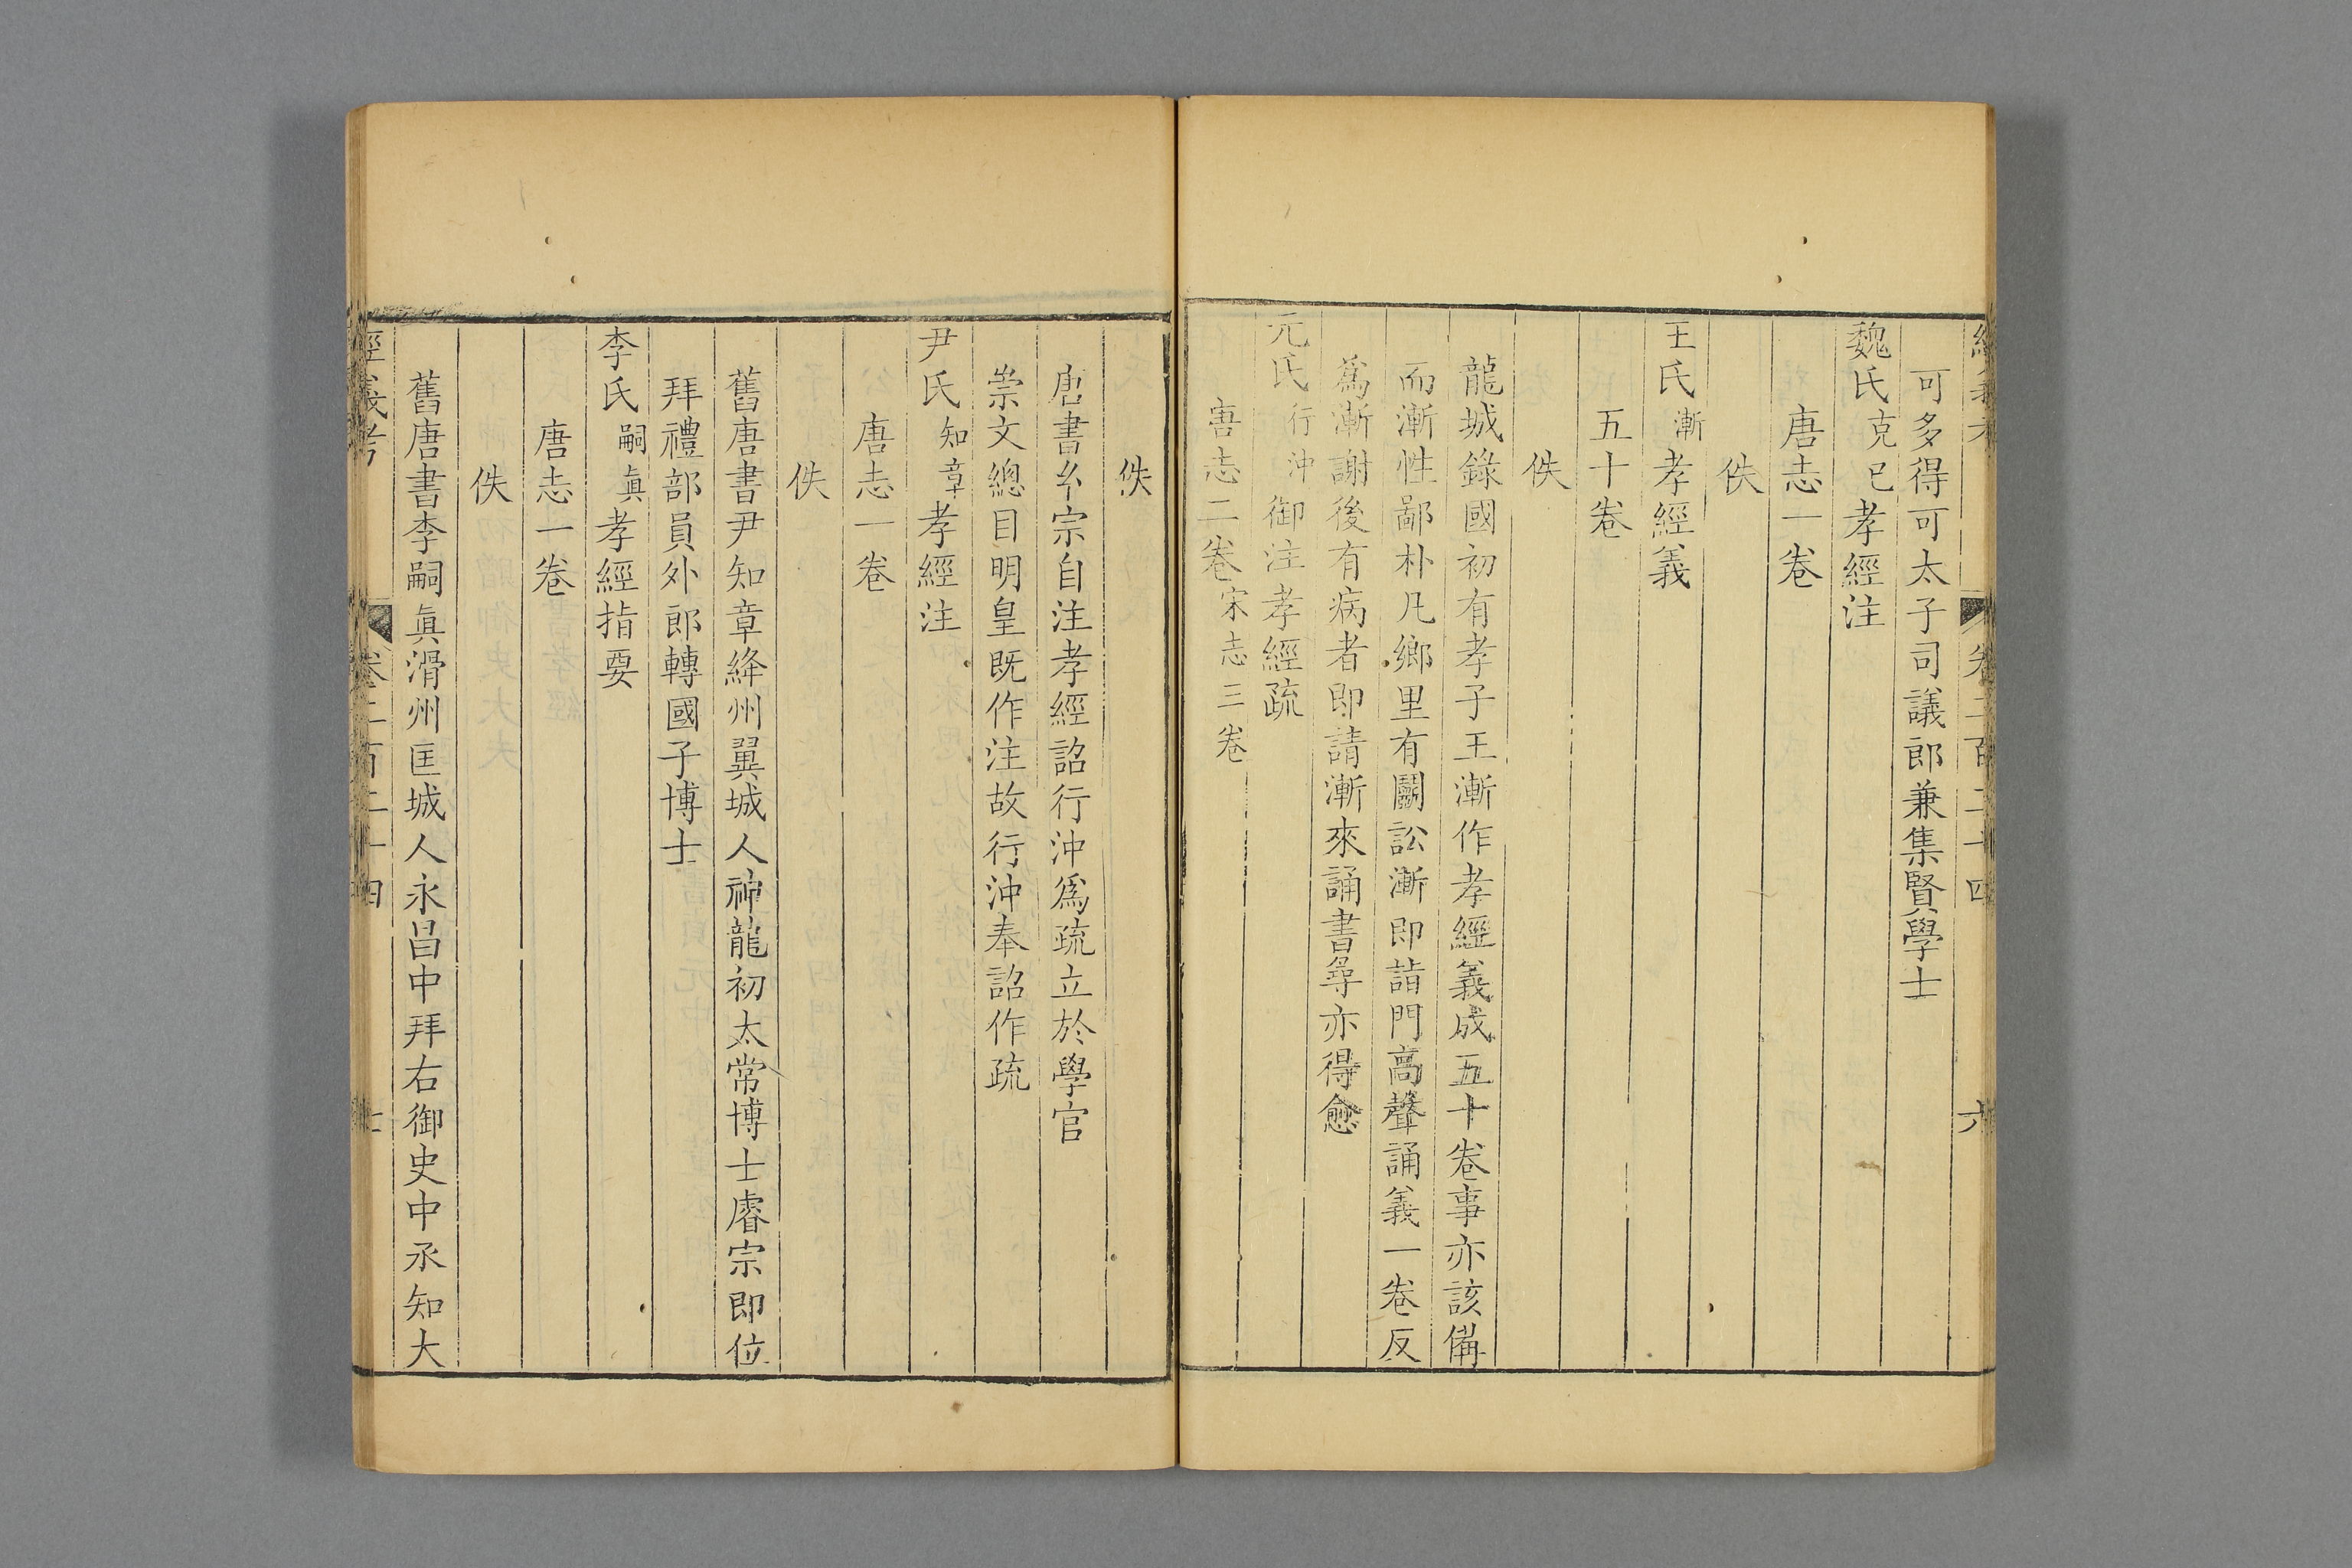 可多得可太子司議郎兼集賢學士
魏氏克已孝經注
唐志一卷
佚
王氏漸孝經義
五十卷
佚
龍城錄國初有孝子王漸作孝經義成五十卷事亦該備
而漸性鄙朴凡鄉里有鬭訟漸即詣門高聲誦義一卷反
爲漸謝後有病者即請漸來誦書尋亦得愈
元氏行沖御注孝經疏
唐志二卷宋志三卷
佚
唐書𤣥宗自注孝經詔行沖爲疏立於學官
崇文總目明皇既作注故行沖奉詔作疏
尹氏知章孝經注
唐志一卷
佚
舊唐書尹知章絳州翼城人神龍初太常博士睿宗即位
拜禮部員外郎轉國子博士
李氏嗣眞孝經指要
唐志一卷
佚
舊唐書李嗣眞滑州匡城人永昌中拜右御史中丞知大
經義考 卷二百二十四